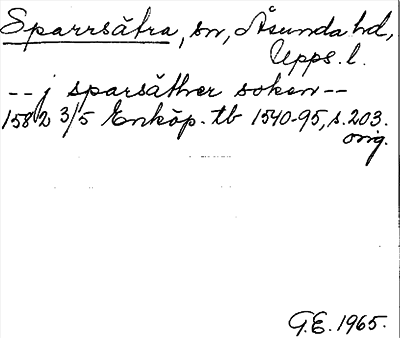 Sparrsätra, sn, Åsunda hd,
Upps. l.
-- j sparsäther soken --
1582 3/5 Enköp. tb 1540-95, s. 203.
orig.
G.E. 1965.